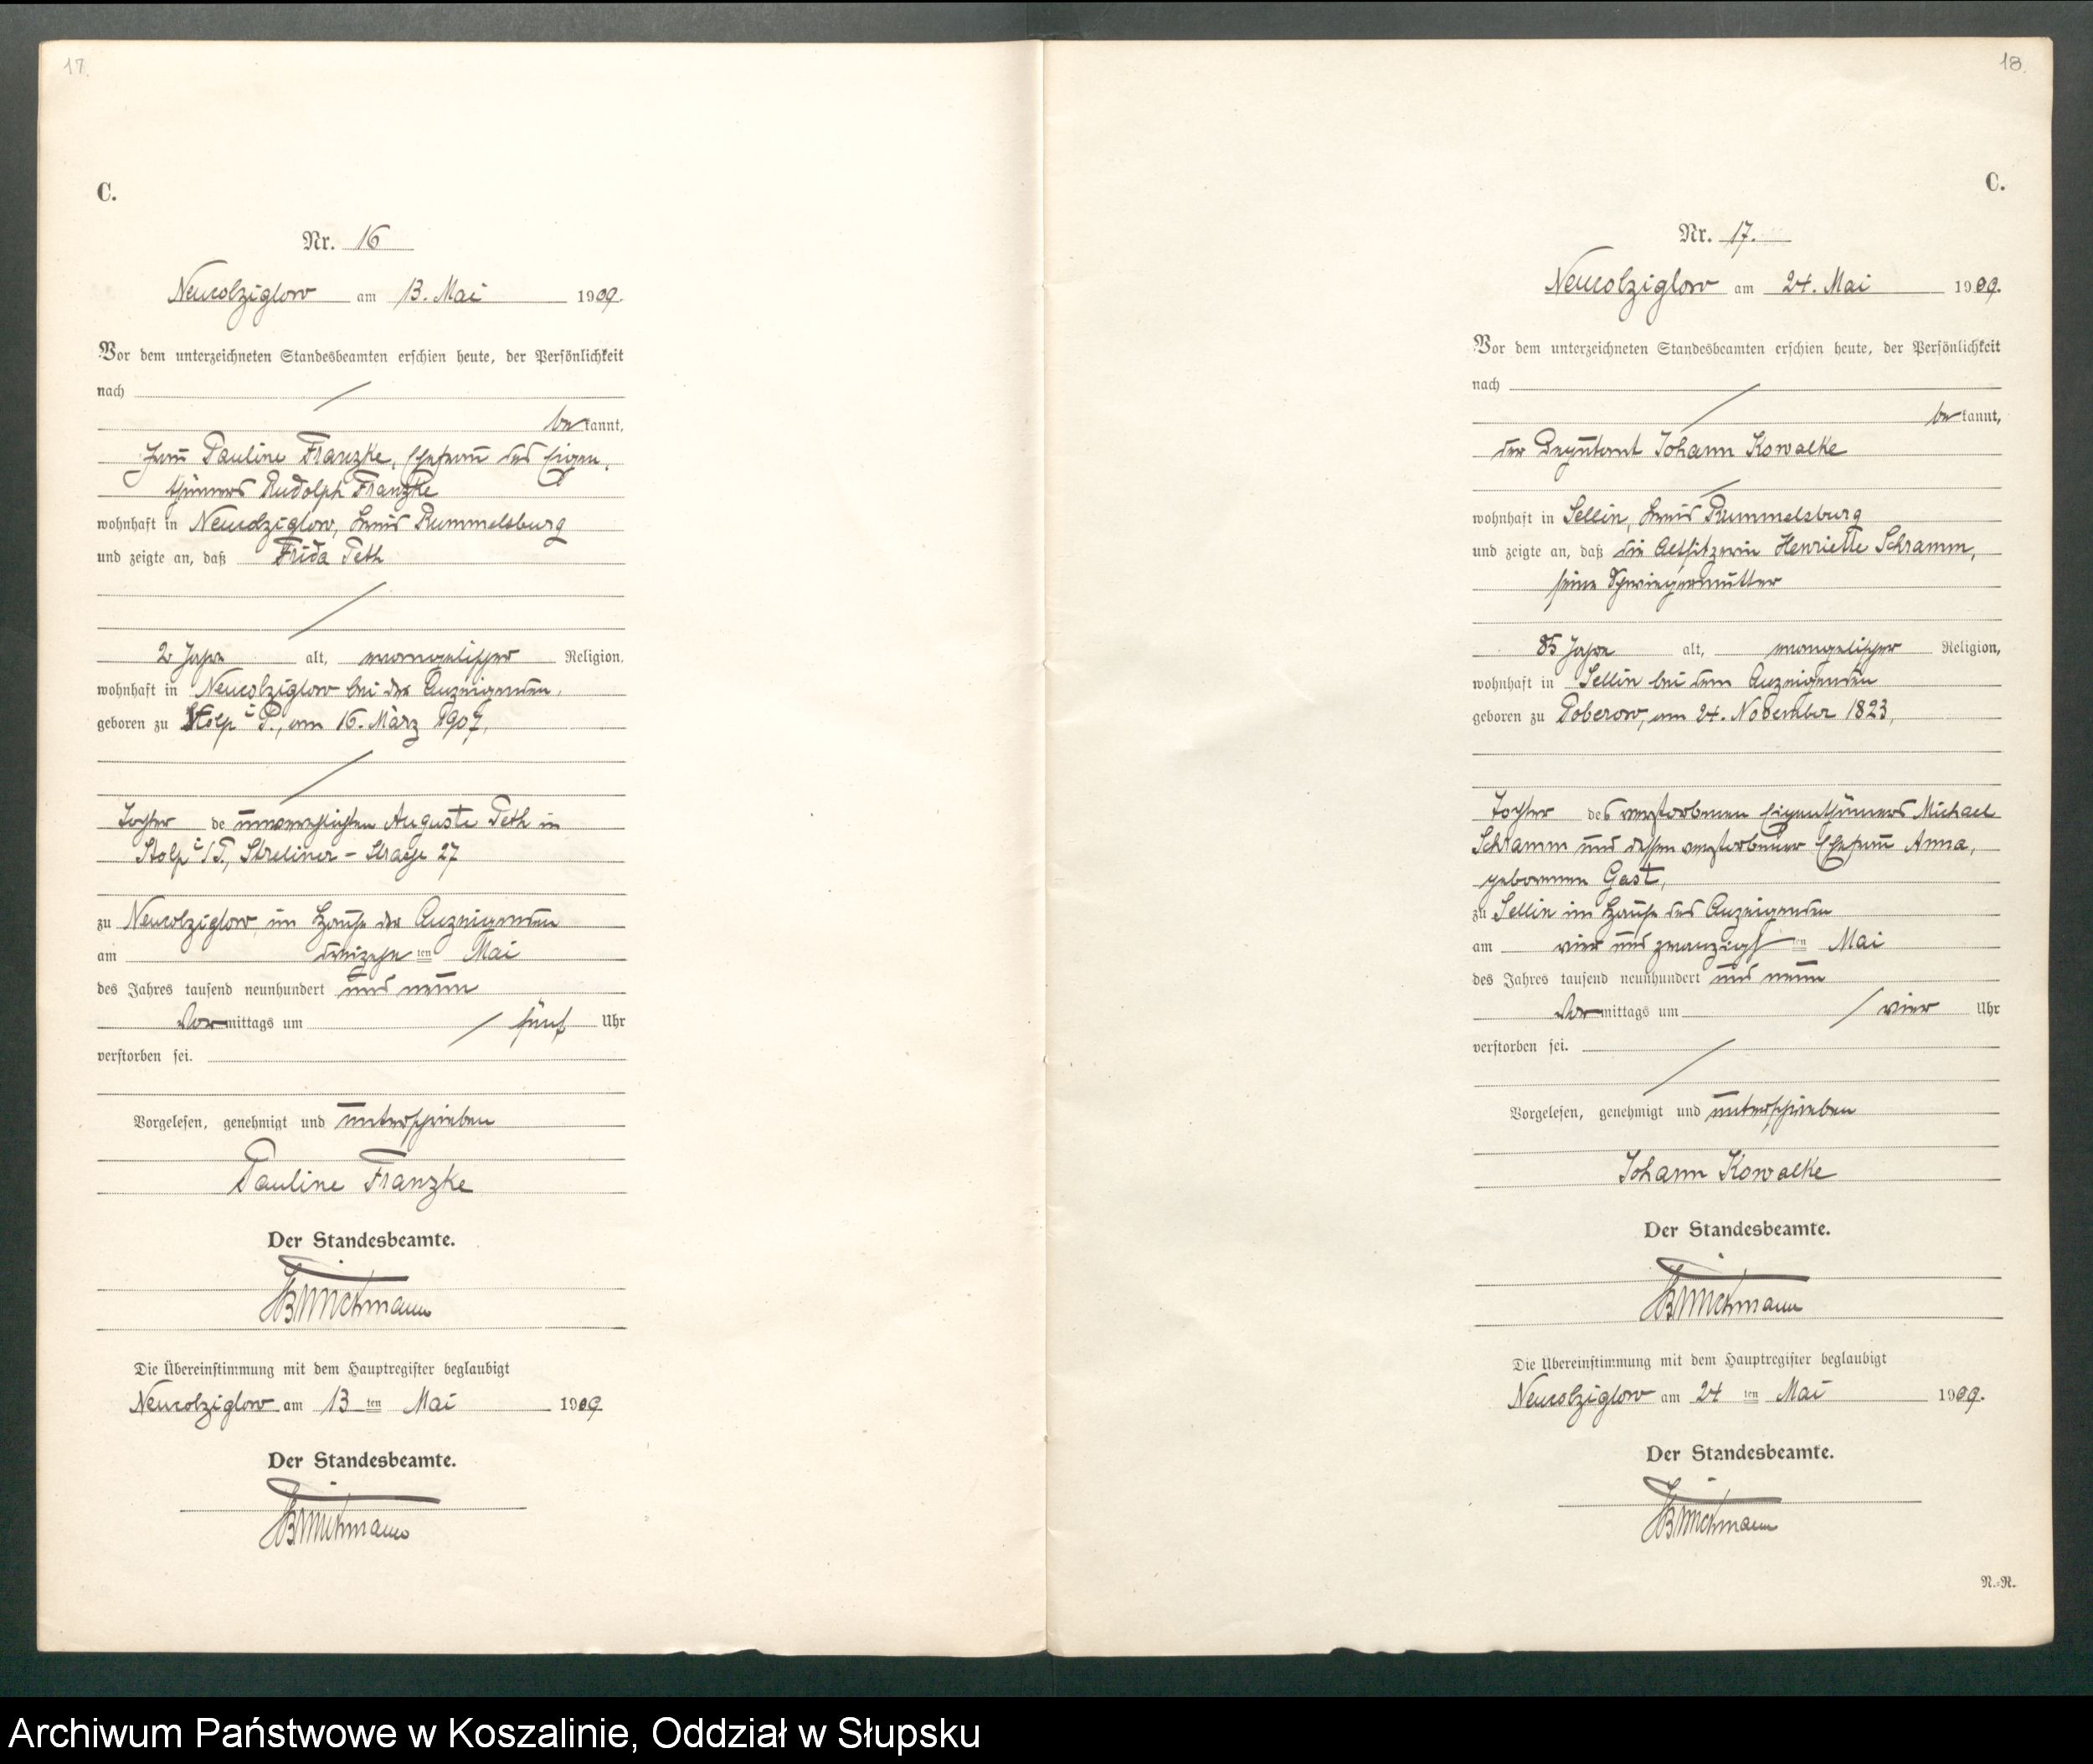 17.
C.
Nr. 16
Neukolziglow am 13. Mai 1909.
Vor dem unterzeichneten Standesbeamten erschien heute, der Persönlichkeit
nach
bekannt,
Frau Pauline Franzke, Ehefrau des Eigen-
thümers Rudolph Franzke
wohnhaft in Neukolziglow, Kreis Rummelsburg
und zeigte an, daß Frida Peth
2 Jahre alt, evangelischer Religion,
wohnhaft in Neukolziglow bei der Anzeigenden,
geboren zu Stolp i P., am 16. März 1907,
Tochter de unverehelichten Auguste Peth in
Stolp i/P., Streliner-Strasse 27
zu Neukolziglow, im Hause der Anzeigenden
am dreizehnten Mai
des Jahres tausend neunhundert und neun
Vormittags um fünf Uhr
verstorben sei.
Vorgelesen, genehmigt und unterschrieben
Pauline Franzke
Der Standesbeamte.
Die Übereinstimmung mit dem Hauptregister beglaubigt
Neukolziglow am 13 ten Mai 1909
Der Standesbeamte.
18.
C.
Nr. 17.
Neukolziglow am 24. Mai 1909.
Vor dem unterzeichneten Standesbeamten erschien heute, der Persönlichkeit
nach
bekannt,
der Deputant Johann Kowalke
wohnhaft in Sellin, Kreis Rummelsburg
und zeigte an, daß die Altsitzerin Henriette Schramm,
seine Schwiegermutter
85 Jahre alt, evangelischer Religion,
wohnhaft in Sellin bei dem Anzeigenden
geboren zu Poberow, am 24. November 1823,
Tochter des verstorbenen Eigenthümers Michael
Schramm und dessen verstorbener Ehefrau Anna,
geborenen Gast,
zu Sellin im Hause des Anzeigenden
am vier und zwanzigsten Mai
des Jahres tausend neunhundert und neun
Vormittags um vier Uhr
verstorben sei.
Vorgelesen, genehmigt und unterschrieben
Johann Kowalke
Der Standesbeamte.
Die Übereinstimmung mit dem Hauptregister beglaubigt
Neukolziglow am 24 ten Mai 1909.
Der Standesbeamte.
N.-R.
Archiwum Państwowe w Koszalinie, Oddział w Słupsku